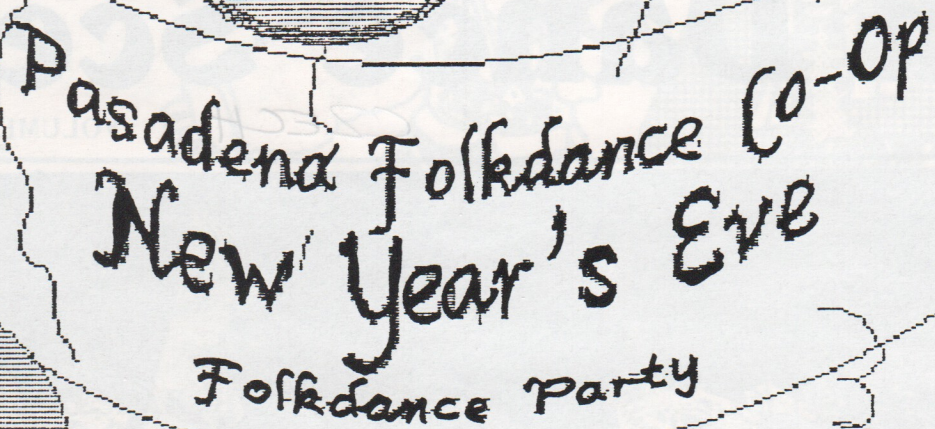 Pasadena Folkdance Co-Op
New Year's Eve
Folkdance Party